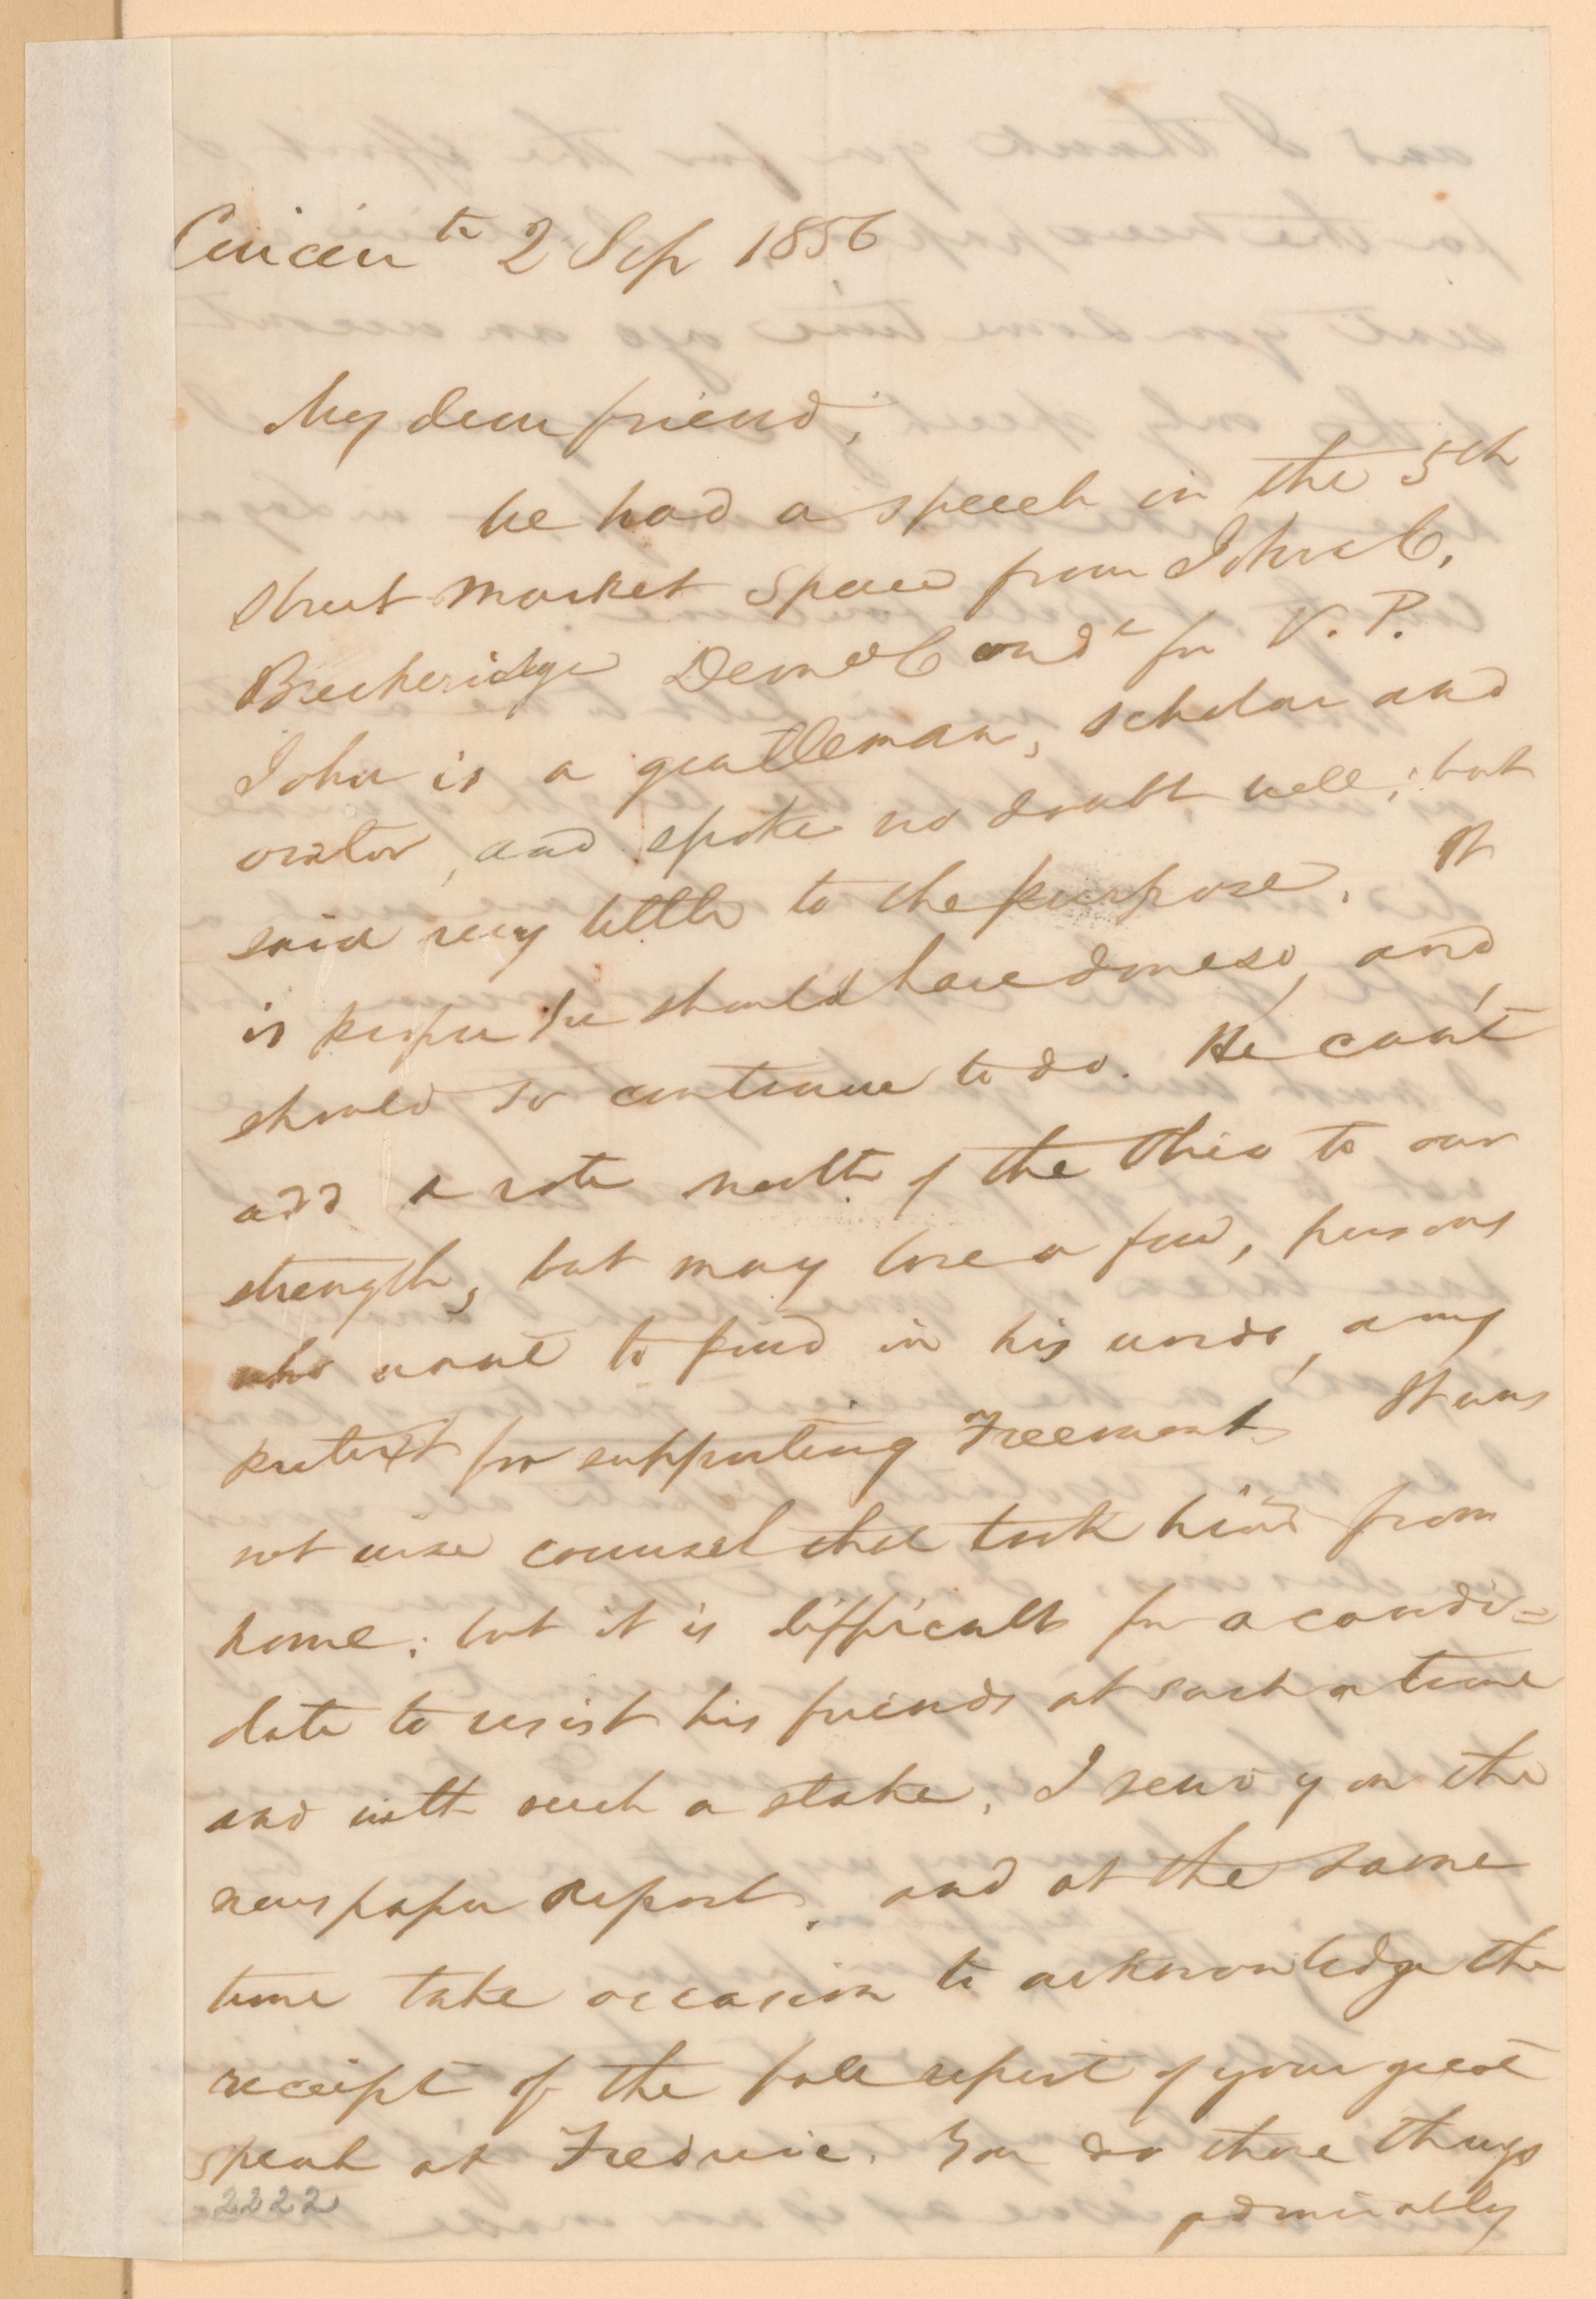 Cincinti 2 Sep 1856
My dear friend,
We had a speech in the 5th
Street Market Space from John C.
Breckeridge Demo Cande for V. P.
John is a gentleman, scholar and
orator, and spoke no doubt well; but
said very little to the purpose. It
is proper he should have done so, and,
should so continue to do. He can't
add a vote north of the Ohio to our
strength, but may lose a few, persons
who want to find in his words, any
pretext for supporting Freemont. It was
not wise counsel that took him from
home; but it is difficult for a candi=
date to resist his friends at such a time
and with such a stake. I send you the
newspaper report, and at the same
time take occasion to acknowledge the
receipt of the full report of your great
speech at Frederic. You do those things
admirably
2222